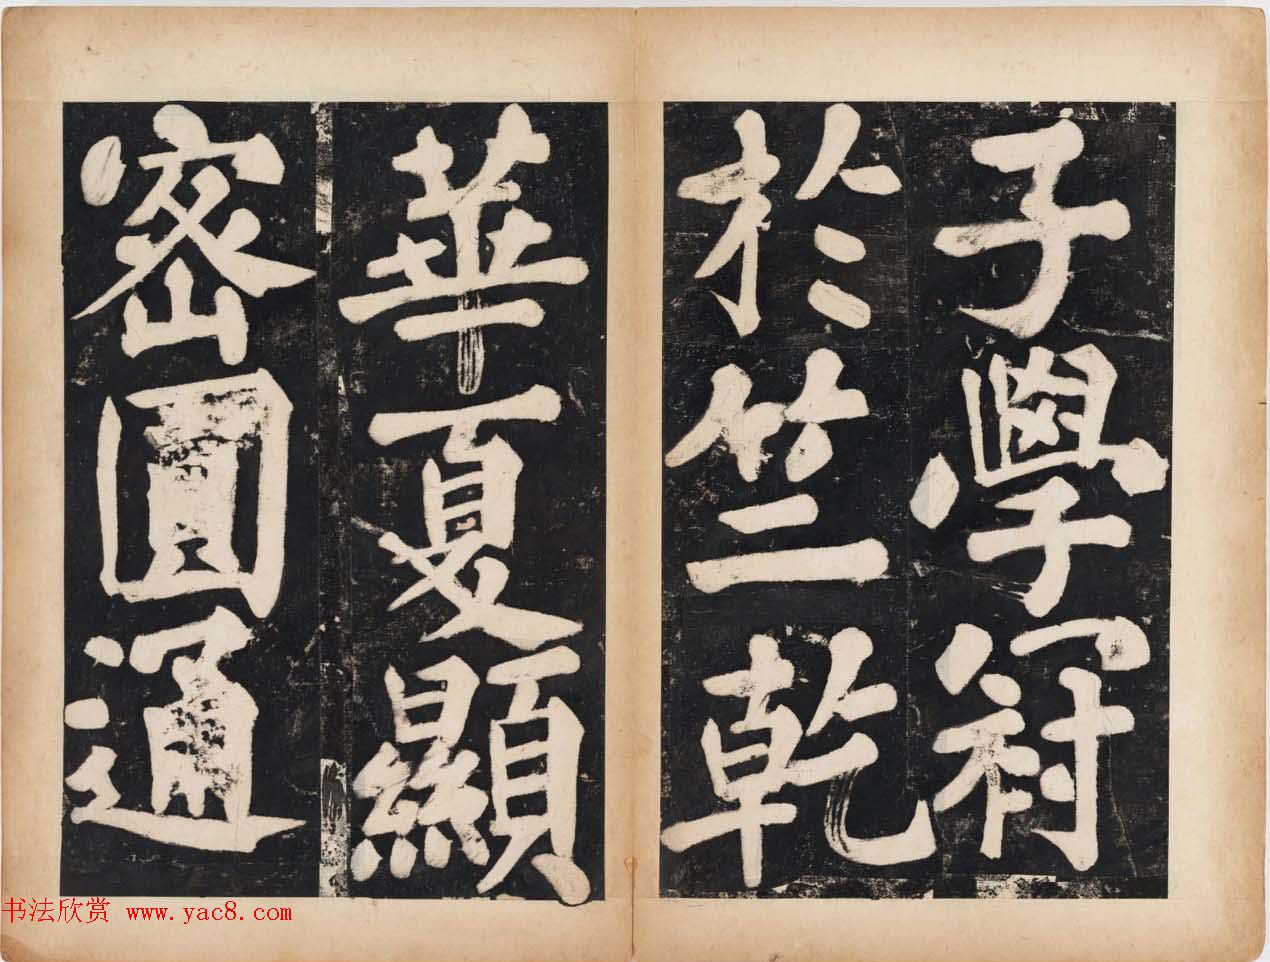 子學冠
於竺乾
華夏顯
密圓通
书法欣赏 www.yac8.com